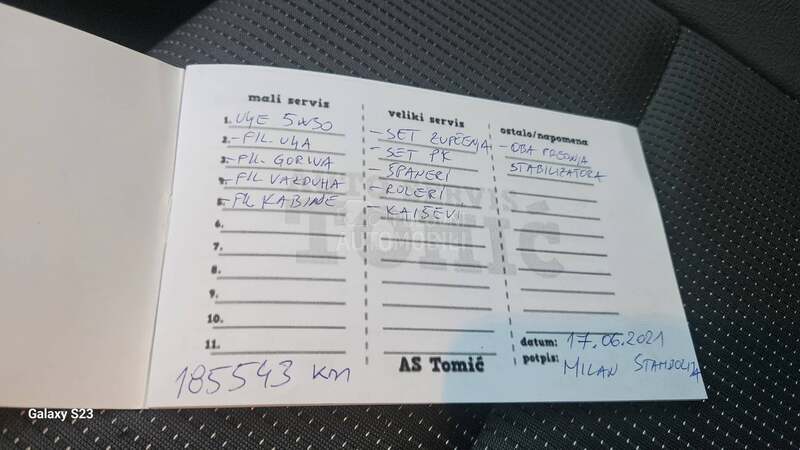 mali servis
1. ULJE 5W30
2. - FIL. ULJA
3. - FIL. GORIVA
4. - FIL VAZDUHA
5. - FIL KABINE
6.
7.
8.
9.
10.
11.
185543 KM
veliki servis
- SET ZUPČENJA
- SET PK
- ŠPANERI
- ROLERI
- KAIŠEVI
AS Tomić
ostalo/napomena
- OBA PREDNJA
STABILIZATORA
datum: 17.06.2021
potpis: MILAN
AUTO SERVIS
Tomić
AUTOMOBILI
Galaxy S23